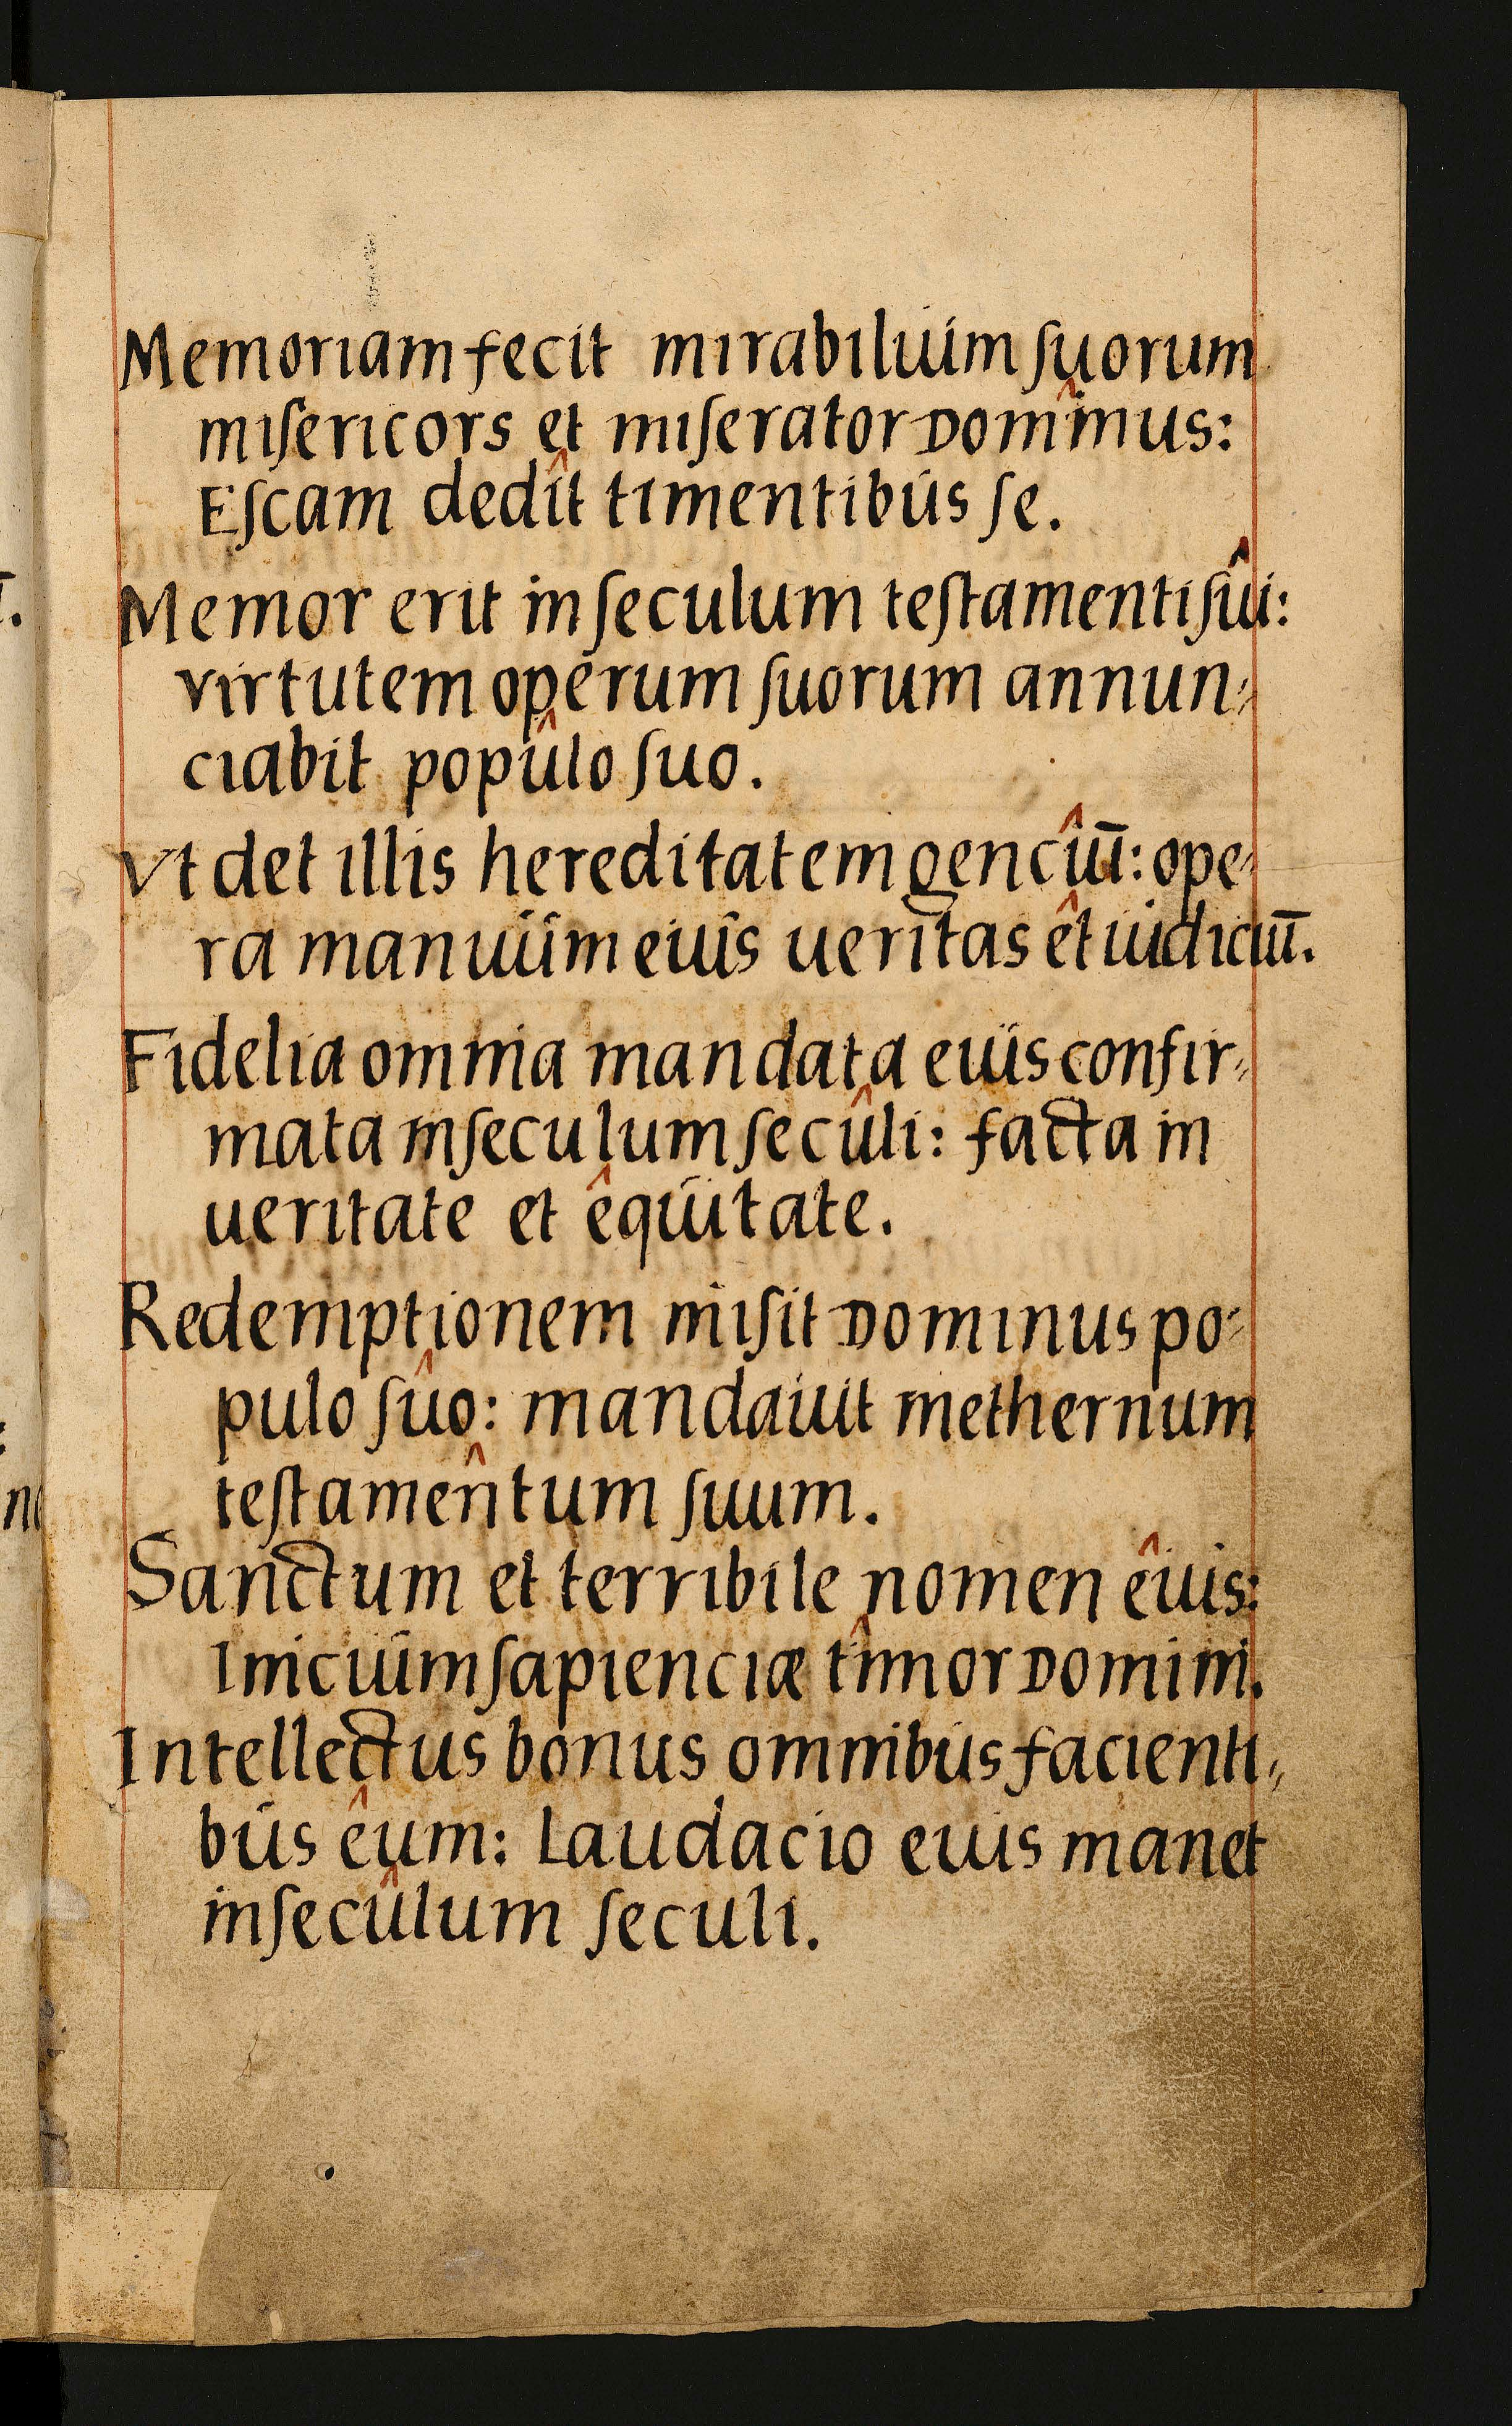 Memoriam fecit mirabilium ſuorum
miſericors et miſerator Dominus:
Eſcam dedit timentibus ſe.
Memor erit in ſeculum teſtamenti ſui:
virtutem operum ſuorum annun⸗
ciabit populo ſuo.
Vt det illis hereditatem genciū: ope⸗
ra manuum eius ueritas et iudiciū.
Fidelia omnia mandata eius confir⸗
mata in ſeculum ſeculi: facta in
ueritate et equitate.
Redemptionem miſit Dominus po⸗
pulo ſuo: mandauit in ethernum
teſtamentum ſuum.
Sanctum et terribile nomen eius:
Inicium ſapienciæ timor Domini.
Intellectus bonus omnibus facienti⸗
bus eum: Laudacio eius manet
in ſeculum ſeculi.